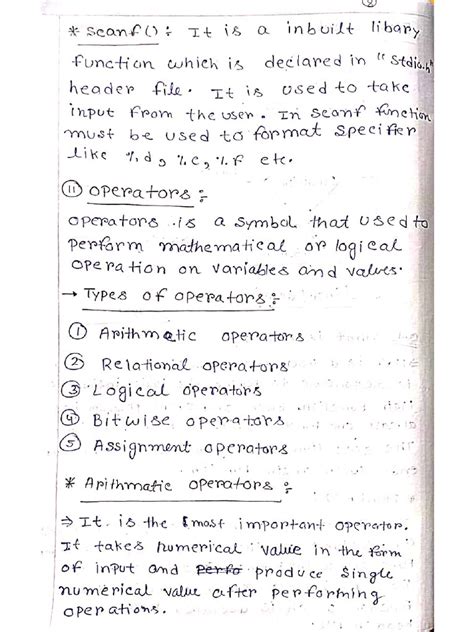 * Scanf() :- It is a inbuilt libary
function which is declared in "stdio.h"
header file. It is used to take
input from the user. In scanf function
must be used to format specifier
like %d, %c, %f etc.
⑪ operators :-
operators is a symbol that used to
perform mathematical or logical
operation on variables and values.
→ Types of operators :-
① Arithmatic operators
② Relational operators
③ Logical operators
④ Bitwise operators
⑤ Assignment operators
* Arithmatic operators :-
⇒ It is the most important operator.
It takes numerical value in the form
of input and produce single
numerical value after performing
operations.